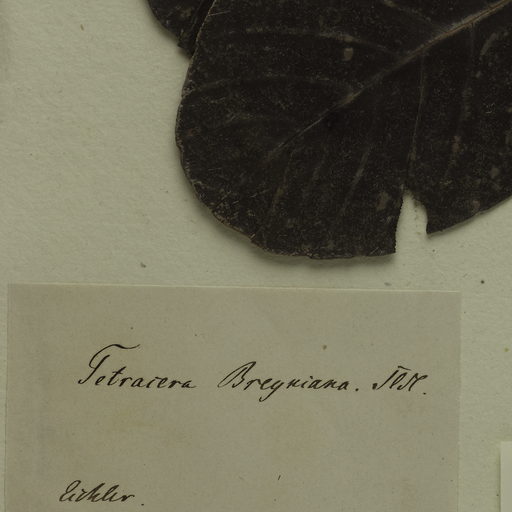 Tetracera Breyniana.
Eichler.